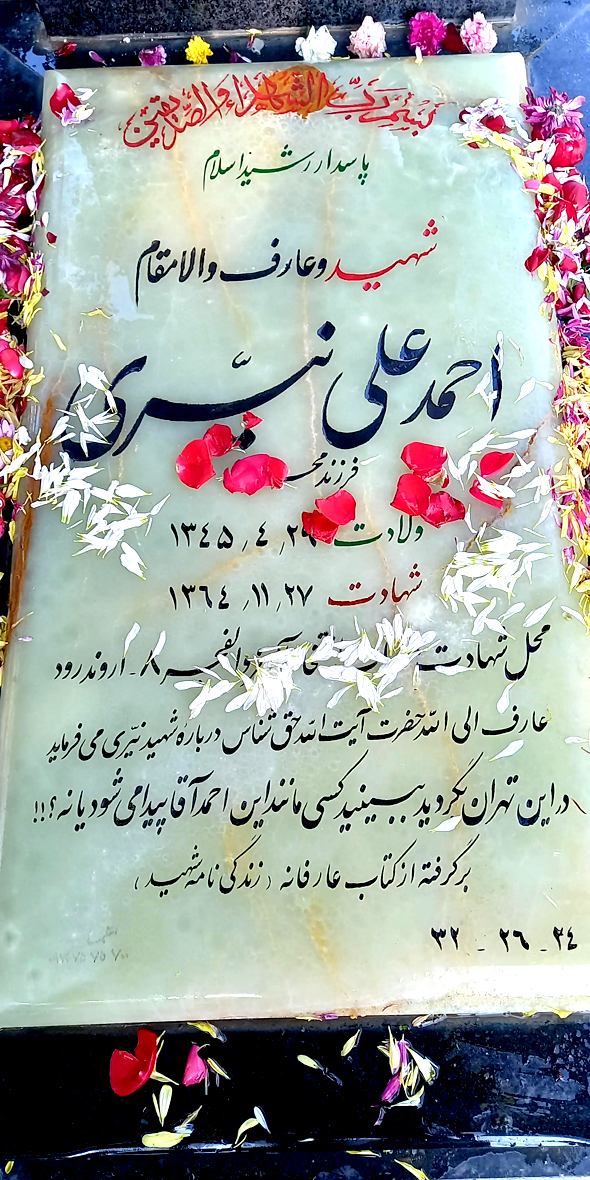 بسم رب الشهداء والصدیقین
پاسدار رشید اسلام
شهید و عارف والامقام
احمد علی نیّری
فرزند
ولادت ۲۹ ، ٤ ، ۱۳٤۵
شهادت ۲۷ ، ۱۱ ، ۱۳٦٤
محل شهادت ۸ - اروندرود
عارف الی الله حضرت آیت الله حق شناس درباره شهید نیّری می فرماید
در این تهران بگردید ببینید کسی مانند این احمد آقا پیدا می شود یا نه؟!!
برگرفته از کتاب عارفانه (زندگی نامه شهید)
۲٤ - ۲٦ - ۳۲